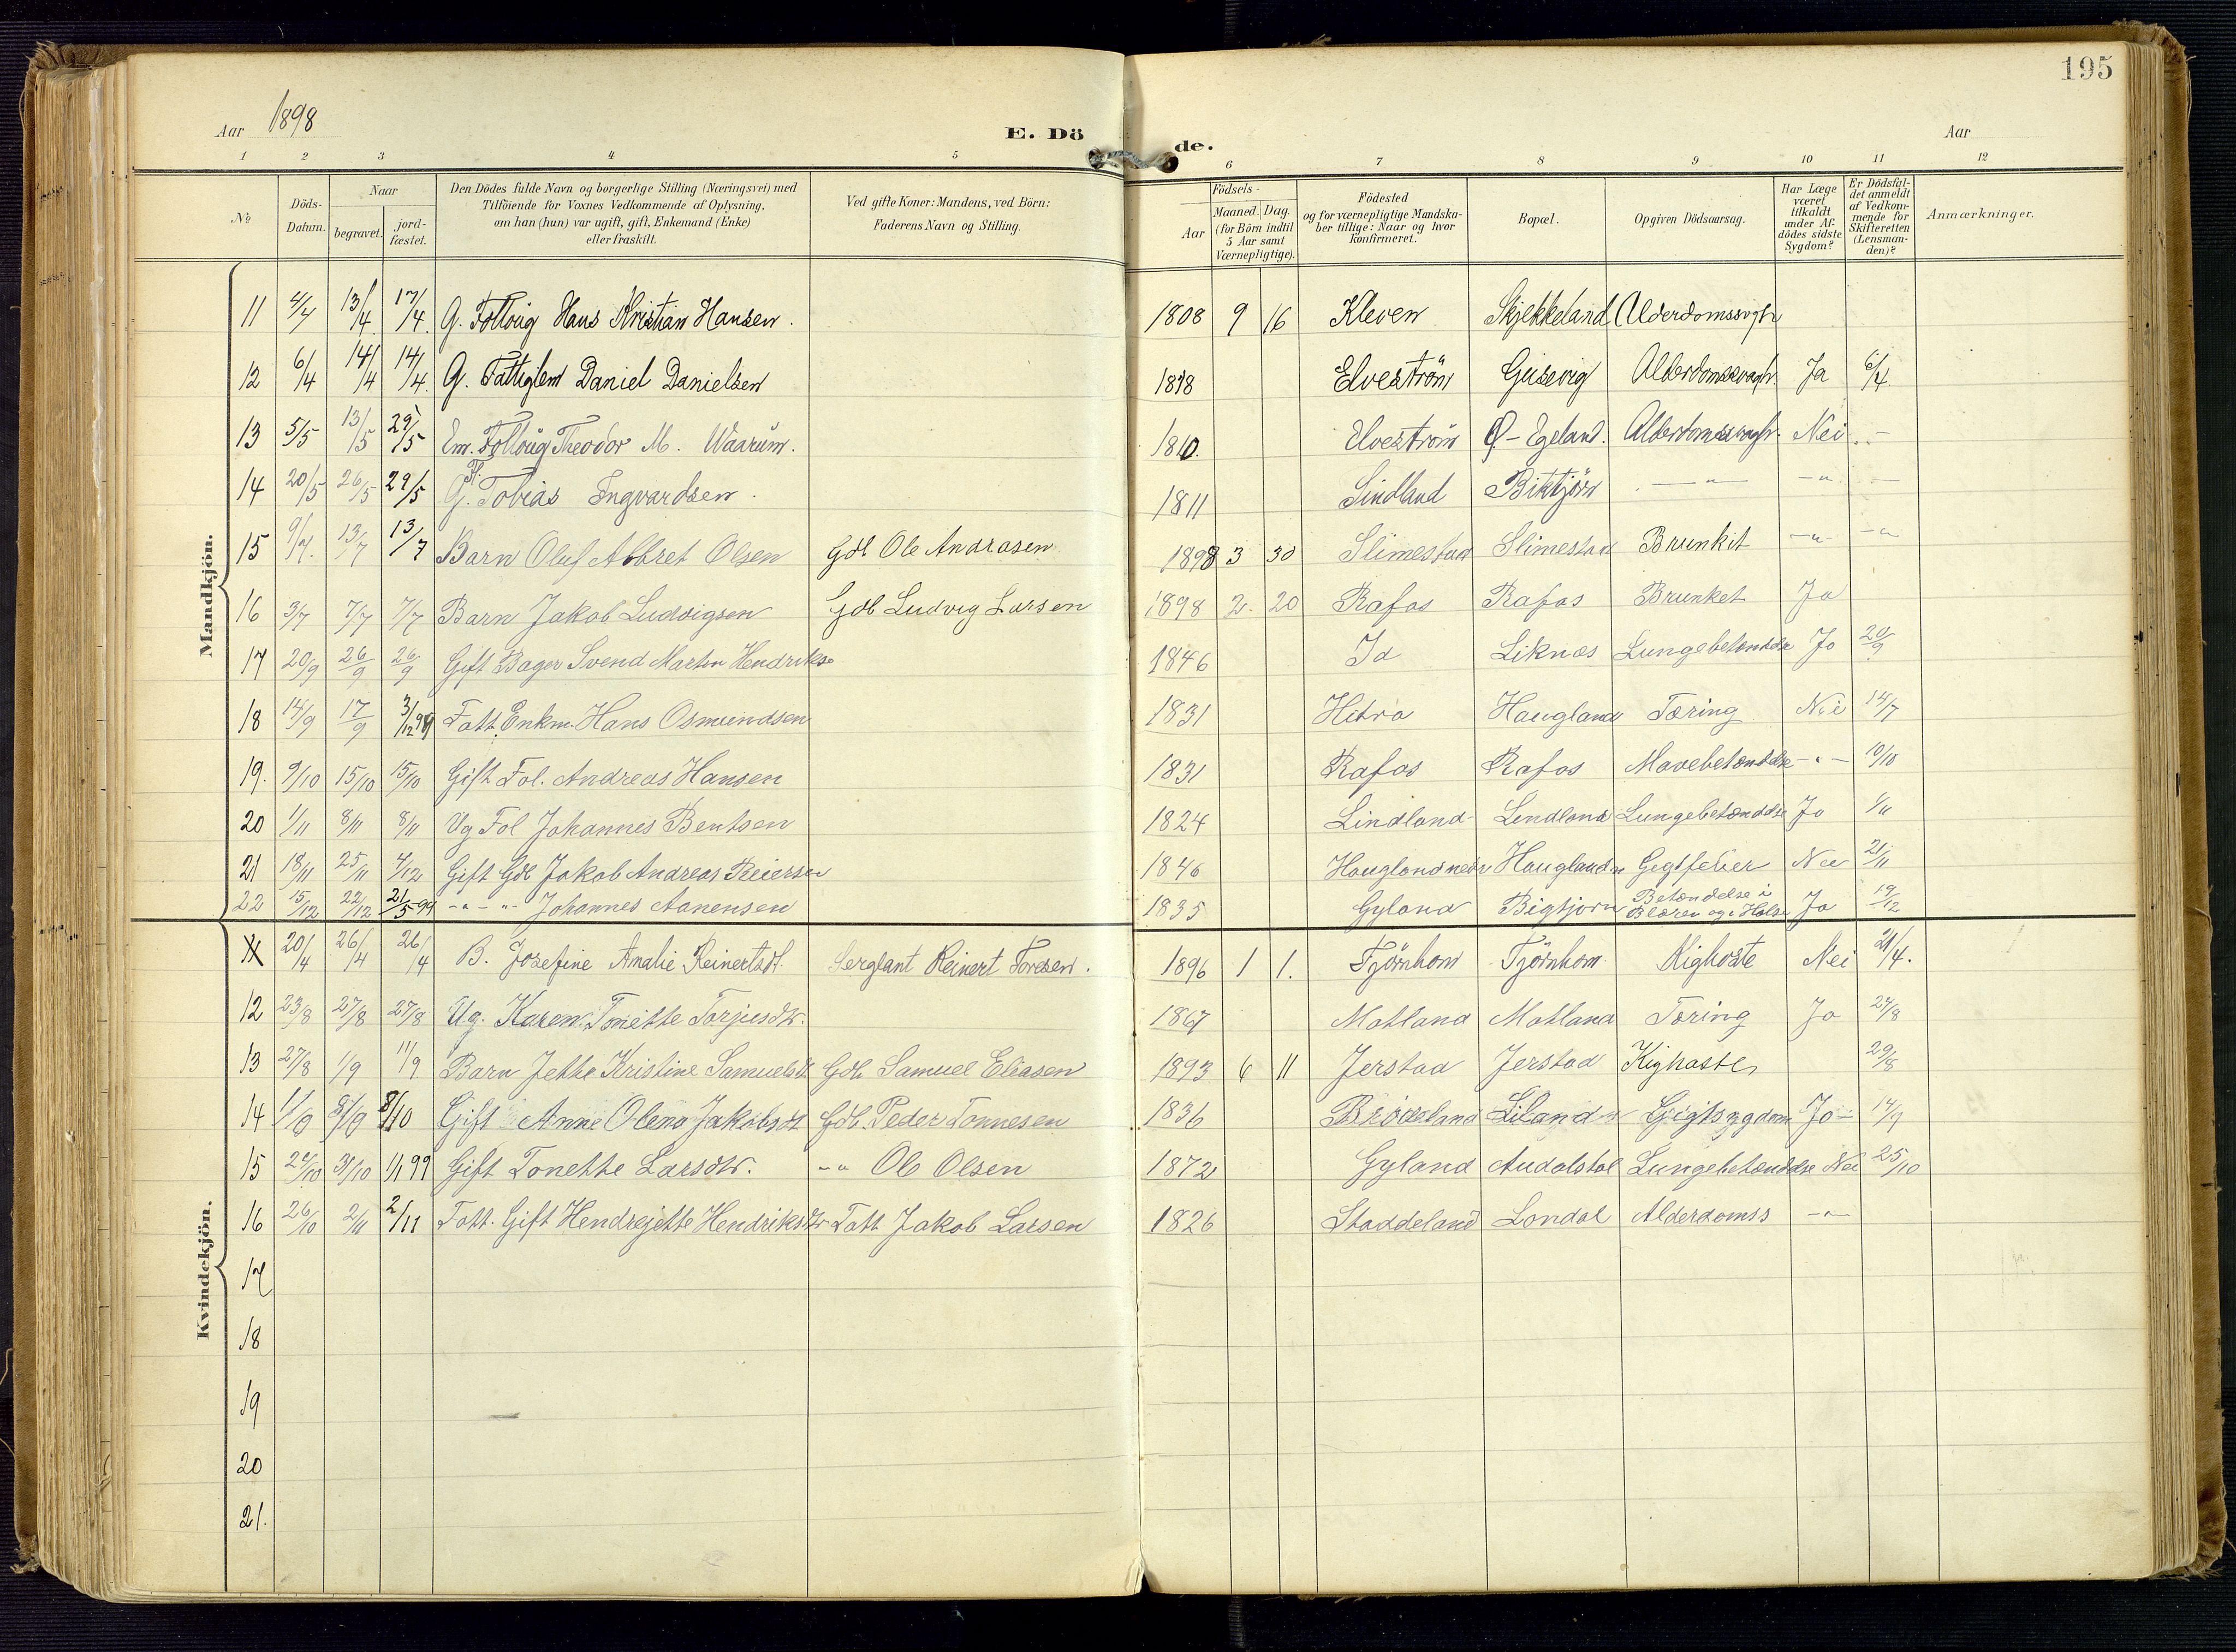 195
Aar 1898
E. Dö de.
Aar
1 2 3 4 5 6 7 8 9 10 11 12
№
Döds-Datum.
Naar begravet. jordfæstet.
Den Dödes fulde Navn og borgerlige Stilling (Næringsvei) med
Tilföiende for Voxnes Vedkommende af Oplysning,
om han (hun) var ugift, gift, Enkemand (Enke)
eller fraskilt.
Ved gifte Koner: Mandens, ved Börn:
Faderens Navn og Stilling.
Födsels-
Aar Maaned. Dag.
(for Börn indtil 5 Aar samt Værnepligtige).
Födested
og for værnepligtige Mandskaber tillige: Naar og hvor konfirmeret.
Bopæl.
Opgiven Dödsaarsag.
Har Læge været tilkaldt under Afdödes sidste Sygdom?
Er Dödsfaldet anmeldt af Vedkommende for Skifteretten (Lensmanden)?
Anmærkninger.
Mandkjön.
11 4/4 13/4 17/4 G. Folloug Hans Kristian Hansen. 1808 9 16 Kleven Skjekkeland
12 6/4 14/4 14/4 G. Fattiglem Daniel Danielsen 1818 Elveström Geisevig Ja 6/4
13 5/5 13/5 29/5 Em. Folloug Theodor M. Waarum. 1810. Elveström Ø-Egeland. Nei
14 20/5 26/5 29/5 G. Tobias Ingvardsen. 1811 Lindland Biktjörn -"- -"-
15 9/7. 13/7 13/7 Barn Oluf Albret Olsen Gdb Ole Andrasen 1898 3 30 Slimestad Slimestad Brunkit -"- -"-
16 3/7 7/7 7/7 Barn Jakob Ludvigsen Gdb Ludvig Larsen 1898 2. 20 Rafos Rafos Brunket Ja
17 20/9 26/9 26/9 Gift Bager Svend Martin Hendrikse 1846 Id Liknæs Lungebetændelse Ja 20/9
18 14/9 17/9 3/12 98 Fatt. Enkm. Hans Osmundsen 1831 Hitra Haugland Tæring Nei 14/7
19. 9/10 15/10 15/10 Gift Fol. Andreas Hansen 1831 Rafos Rafos Mavebetændelse -"- 10/10
20 1/11 8/11 8/11 Ug Fol Johannes Bentsen 1824 Lindland Lindland Lungebetændelse Ja 1/11
21 18/11 25/11 4/12 Gift Gdb Jakob Andreas Reiersen 1846 Haugland nedr Haugland n Gigtfeber Nei 21/11
22 15/12 22/12 21/5 99 -"- -"- Johannes Aanensen 1835 Gyland Bigtjorn Betændelse i Blæren og i Halse Ja 19/12
Kvindekjön.
11 20/4 26/4 26/4 B. Josefine Amalie Reinertsdt. Sergeant Reinert Toresen. 1896 1 1. Tjörnhom Tjörnhom Kighoste Nei 21/4.
12 23/8 27/8 27/8 Ug. Karen Tonette Torjusdtr. 1867 Motland Motland Tæring Ja 24/8
13 27/8 1/9 11/9 Barn Jette Kristine Samuelsdt Gdb Samuel Eliasen 1893 6 11 Jerstad Jerstad Kighoste 29/8
14 1/9 8/9 8/10 Gift Anne Olena Jakobsdt Gdb. Peder Tonnesen 1836 Liland Gigtsygdom Ja
15 31/10 1/1 99 Gift Tonette Larsdtr. -"- Ole Olsen 1872 Gyland Audalstol Lungebetændelse Nei 25/10
16 26/10 2/11 2/11 Fatt. Gift Hendrejette Hendriksdtr Fatt Jakob Larsen 1826 Staddeland Londal Alderdomss -"-
17
18
19
20
21.